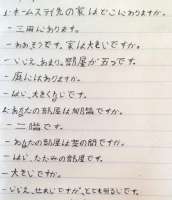 1.ホームステイ先の家はどこにありますか。
－三田にあります。
－ああそうです。家は大きいですか。
－いいえ、あまり。部屋が五つです。
－庭にはありますか。
－はい、大きくないです。
2.あなたの部屋は何階ですか。
－二階です。
－あなたの部屋は畳の間ですか。
－はい、たたみの部屋です。
－大きいですか。
－いいえ、せまいですが、とても明るいです。